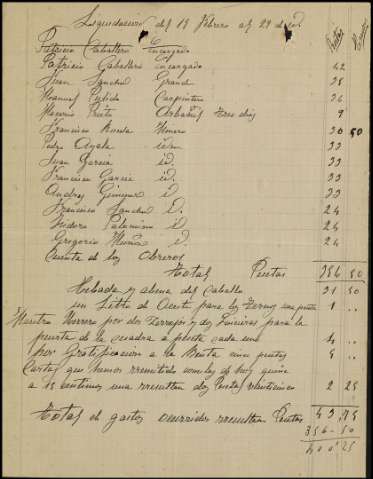 Liquidacion del 15 Febrero al 29 de id.
Pesetas
Patricio Caballero Encargado
Patricio Caballero Encargado 42
Juan Sanchez Grande 35
Manuel Pulido Carpintero 36
Mauricio Prieto Arbañil tres dias 9
Francisco Rueda Minero 30 50
Pedro Ayala idem 33
Juan Garcia id. 33
Francisco Garcia id. 33
Andres Gimenez id 33
Francisco Sanchez id. 24
Isidoro Palomino id. 24
Gregorio Muñoz id. 24
Cuenta de los Obreros
Total Pesetas 356 50
Hebada y alma del Caballo 31 50
un Litro de Aceite para los una peseta 1 ..
Maestro Herrero por dos y dos para la
puerta de la cuadra a peseta cada una 4 ..
por Gratificacion a la Benta cinco pesetas 5 ..
Cartas que hemos remitido con la de hoy quince
a 15 centimos una resultan dos Pesetas veinticinco 2 25
Total el gastos ocurridos resultan Pesetas 43,75
356-50
400'25